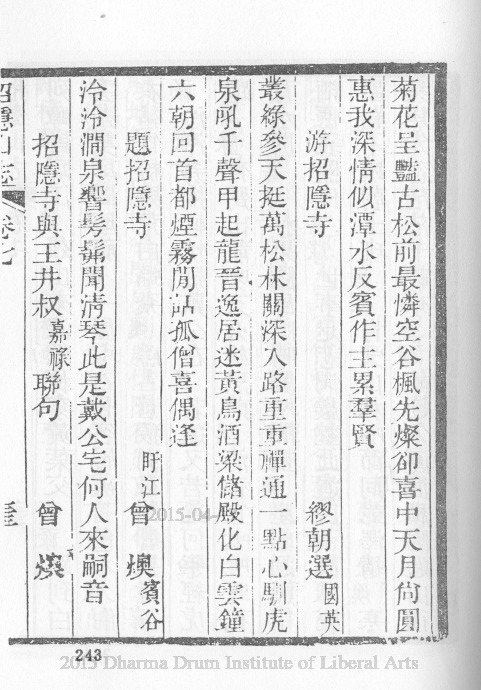 菊花呈豔古松前最憐空谷楓先燦卻喜中天月尙圓
惠我深情似潭水反賓作主累羣賢
游招隱寺 繆朝選 國英
叢綠參天挺萬松林關深入路重重禪通一點心馴虎
泉吼千聲甲起龍晉逸居迷黃鳥酒梁儲殿化白雲鐘
六朝回首都煙霧閒話孤僧喜偶逢
題招隱寺 盱江 曾燠 賓谷
泠泠澗泉響髣髴聞淸琴此是戴公宅何人來嗣音
招隱寺與王井叔 嘉祿 聯句 曾燠
招隱山志 卷七
243
2015-04-
2015 Dharma Drum Institute of Liberal Arts